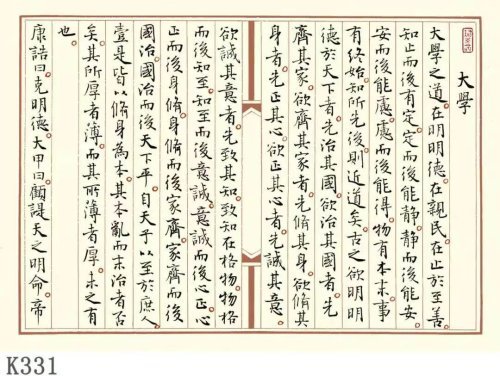 大學
大學之道。在明明德。在親民。在止於至善。
知止而後有定。定而後能靜。靜而後能安。
安而後能慮。慮而後能得。物有本末。事
有終始。知所先後。則近道矣。古之欲明明
德於天下者。先治其國。欲治其國者。先
齊其家。欲齊其家者。先脩其身。欲脩其
身者。先正其心。欲正其心者。先誠其意。
欲誠其意者。先致其知。致知在格物。物格
而後知至。知至而後意誠。意誠而後心正。心
正而後身脩。身脩而後家齊。家齊而後
國治。國治而後天下平。自天子以至於庶人。
壹是皆以脩身為本。其本亂而末治者否
矣。其所厚者薄。而其所薄者厚。未之有
也。
康誥曰。克明德。大甲曰。顧諟天之明命。帝
K331